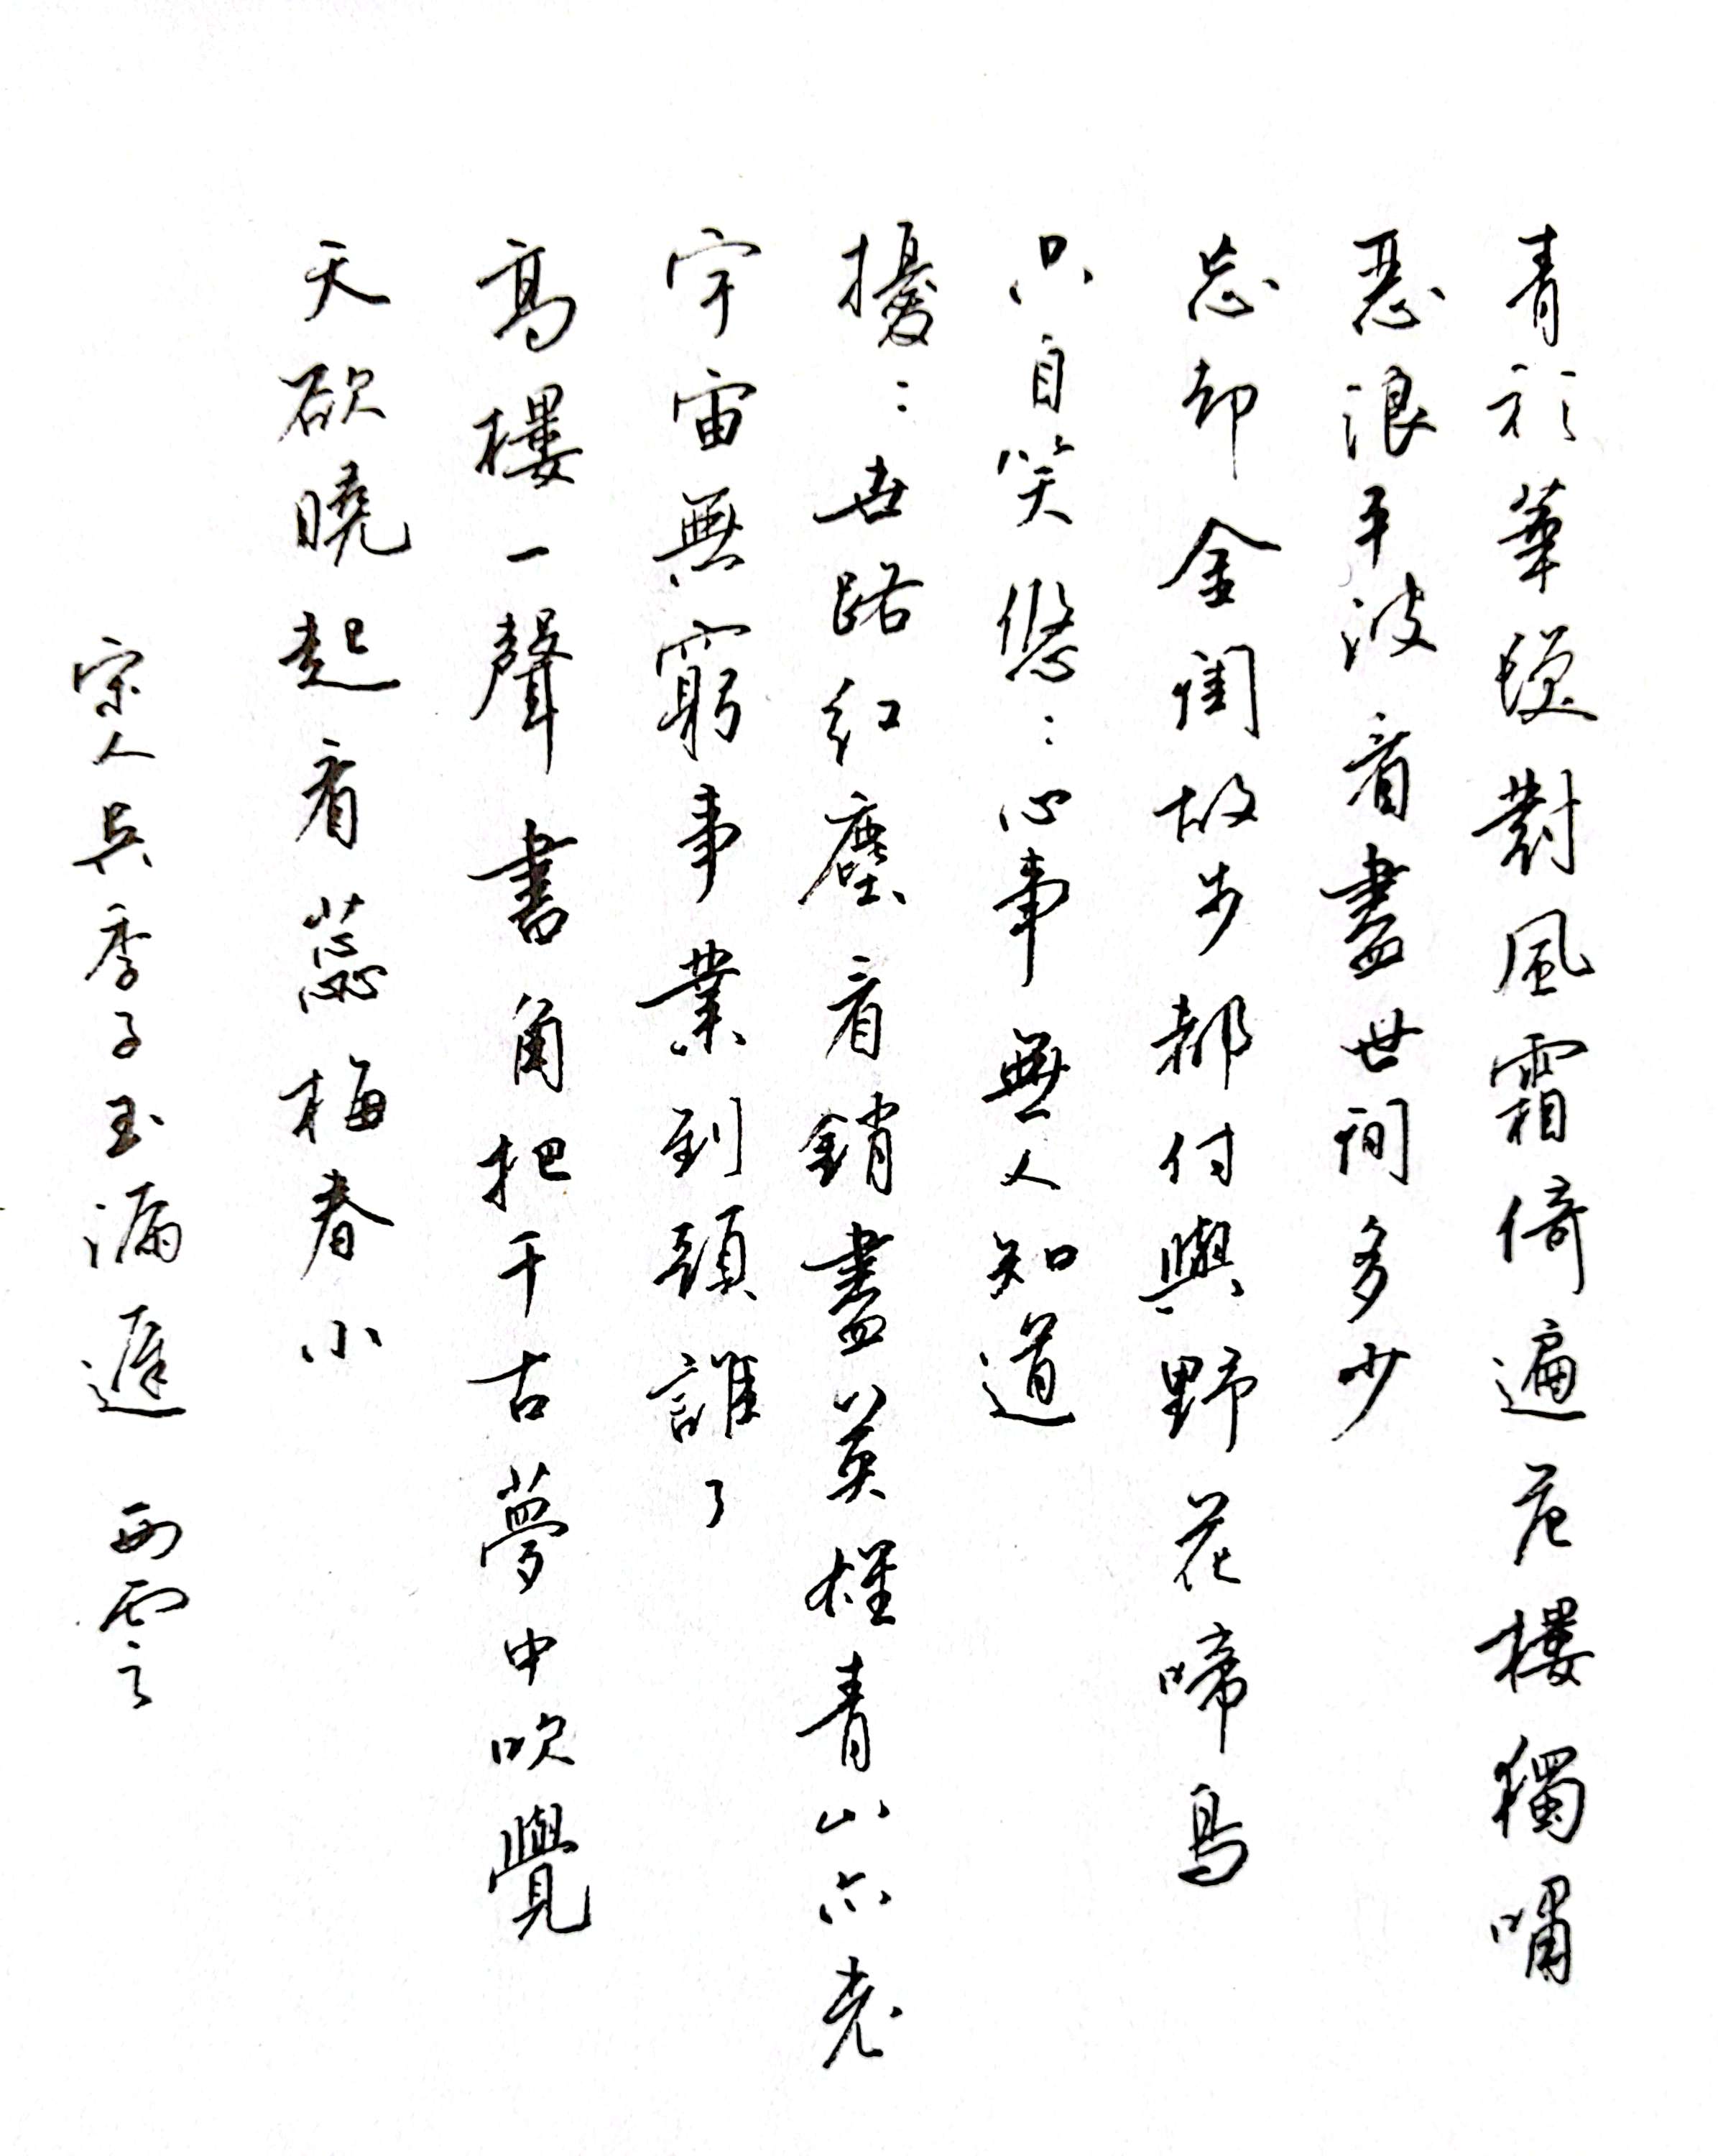 青衫華髮對風霜倚遍危樓獨嘯
惡浪平波看盡世間多少
忘却金閨故步都付與野花啼鳥
只自笑悠〻心事無人知道
擾〻世路紅塵看銷盡英雄青山亦老
宇宙無窮事業到頭誰了
高樓一聲畫角把千古夢中吹覺
天欲曉起看蕊梅春小
宋人吳季子玉漏遲 西雲